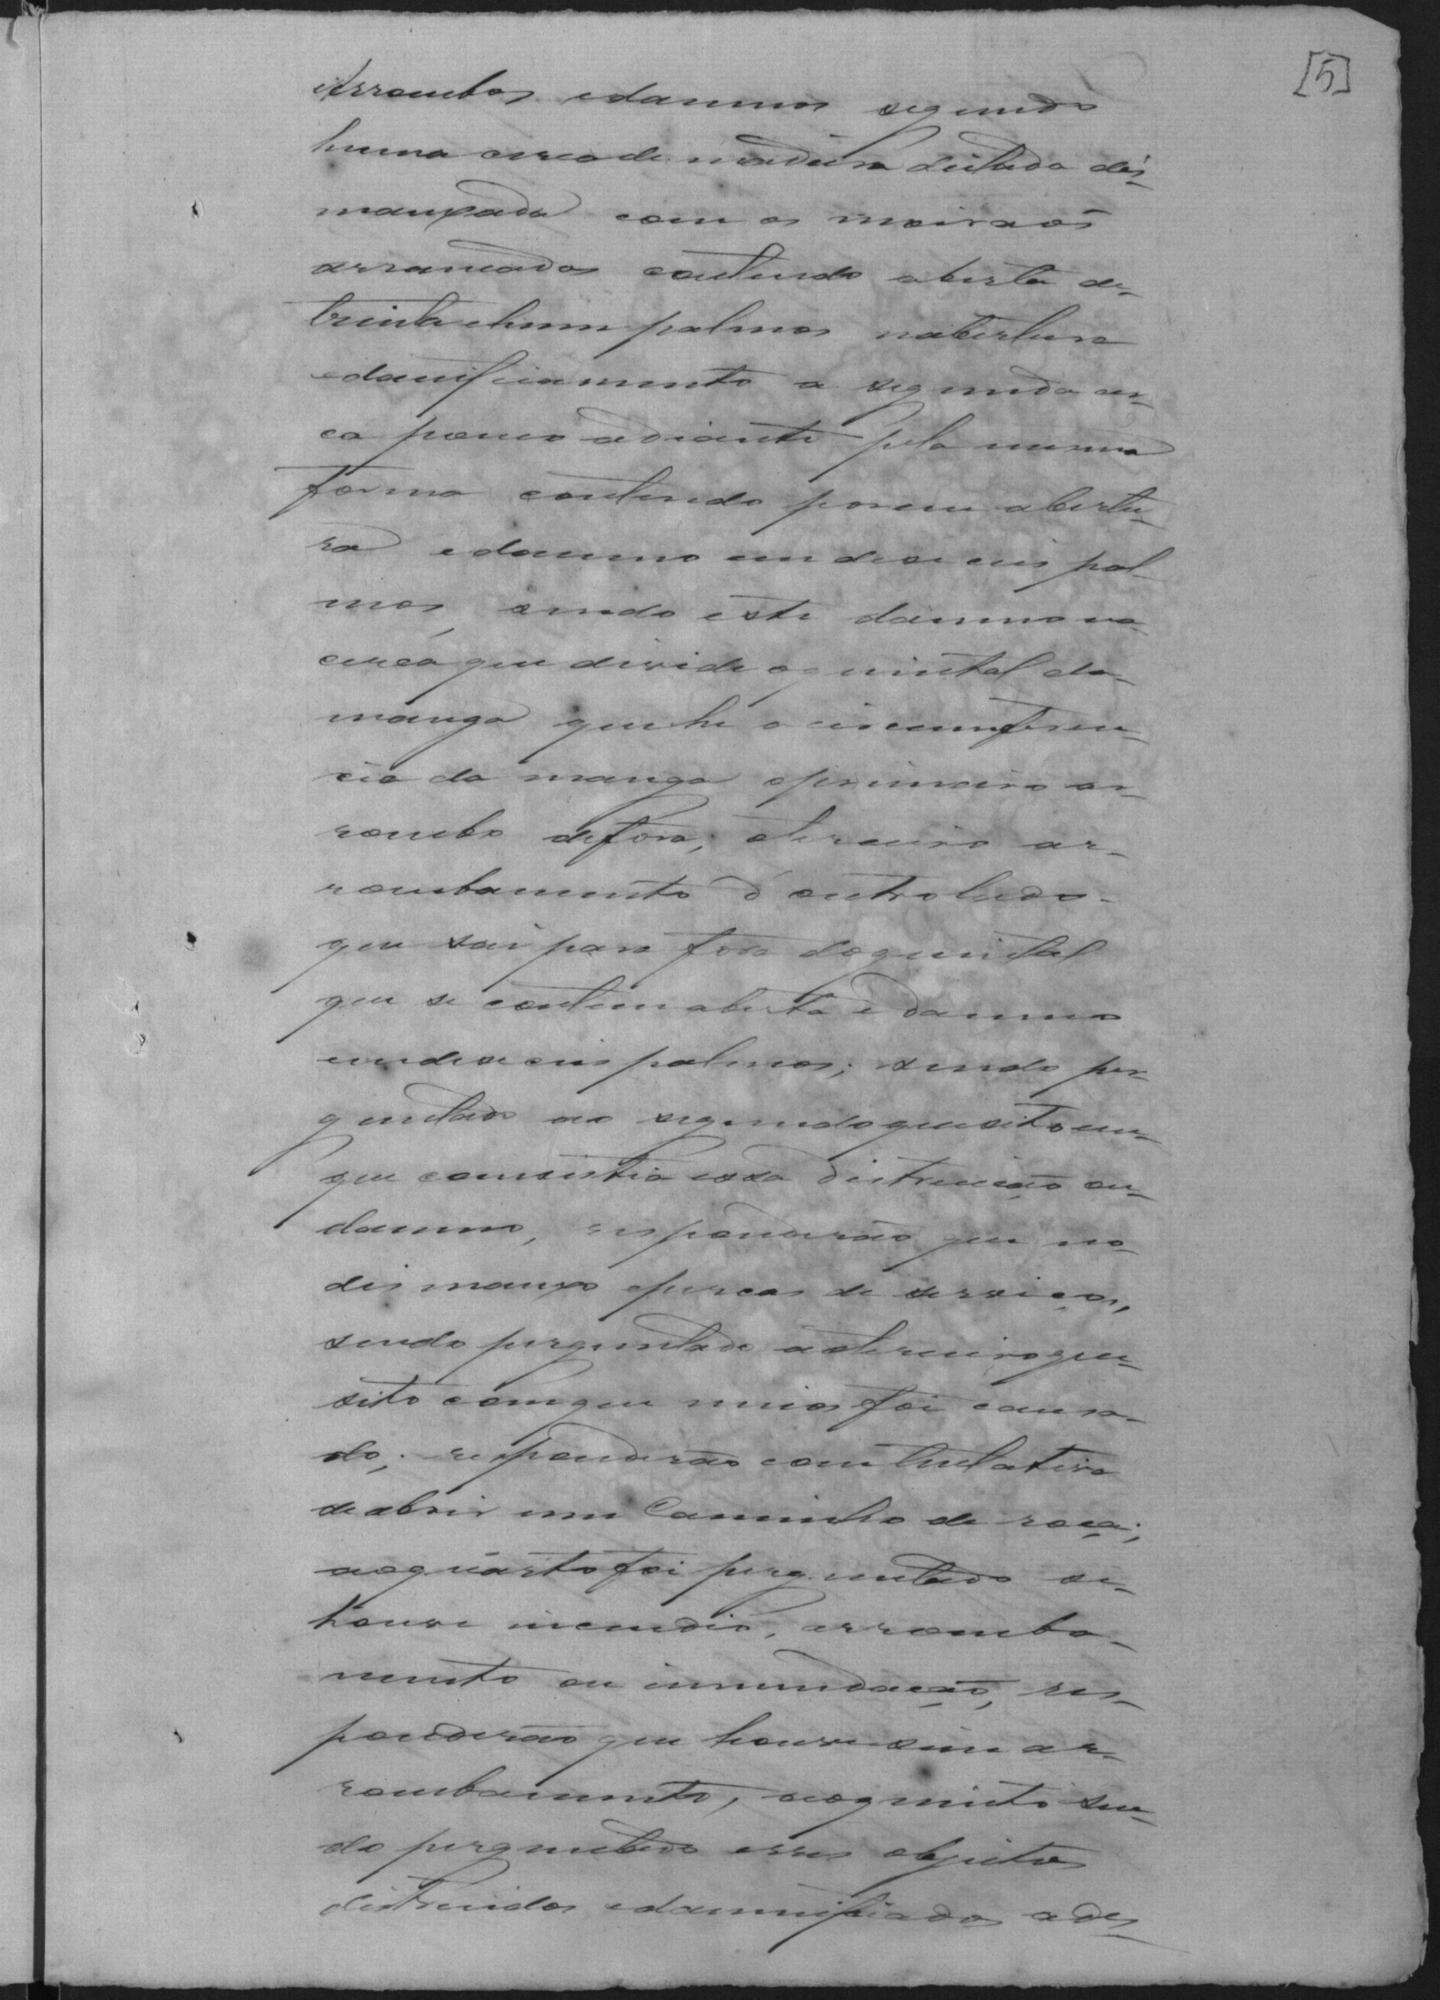 [5]
Arrombos edamnos segundo
huma cerca de madeira deitada des-
manxada com os moirões
arrancados contendo aberta de
trinta ehum palmos naabertura
edanificiamento a segunda cer-
ca pouco adiante pela mesma
forma contendo porem abertu-
ra edamno em dezeceis pal-
mos, sendo este damno na
cerca que divide oquintal da
manga que he a circumferen-
cia da manga oprimeiro ar-
rombo defora; oterceiro ar-
rombamento d'outro lado
que sai para fora doquintal
que se contem aberta e damno
em dezeceis palmos; sendo per-
guntado ao segundo quesito em
que consistia essa distruição ou
damno, responderão que no
desmanxo epercas de serviços,
sendo perguntado aoterceiro que-
sito com que meios foi causa-
do; responderão com tentativa
de abrir um Caminho de roça;
aoquarto foi perguntado se
houve incendio, arromba-
mento ou innundação, res-
ponderão que houve sim ar-
rombamento, aoquinto sen-
do perguntado esses objectos
distruidos edamnificados